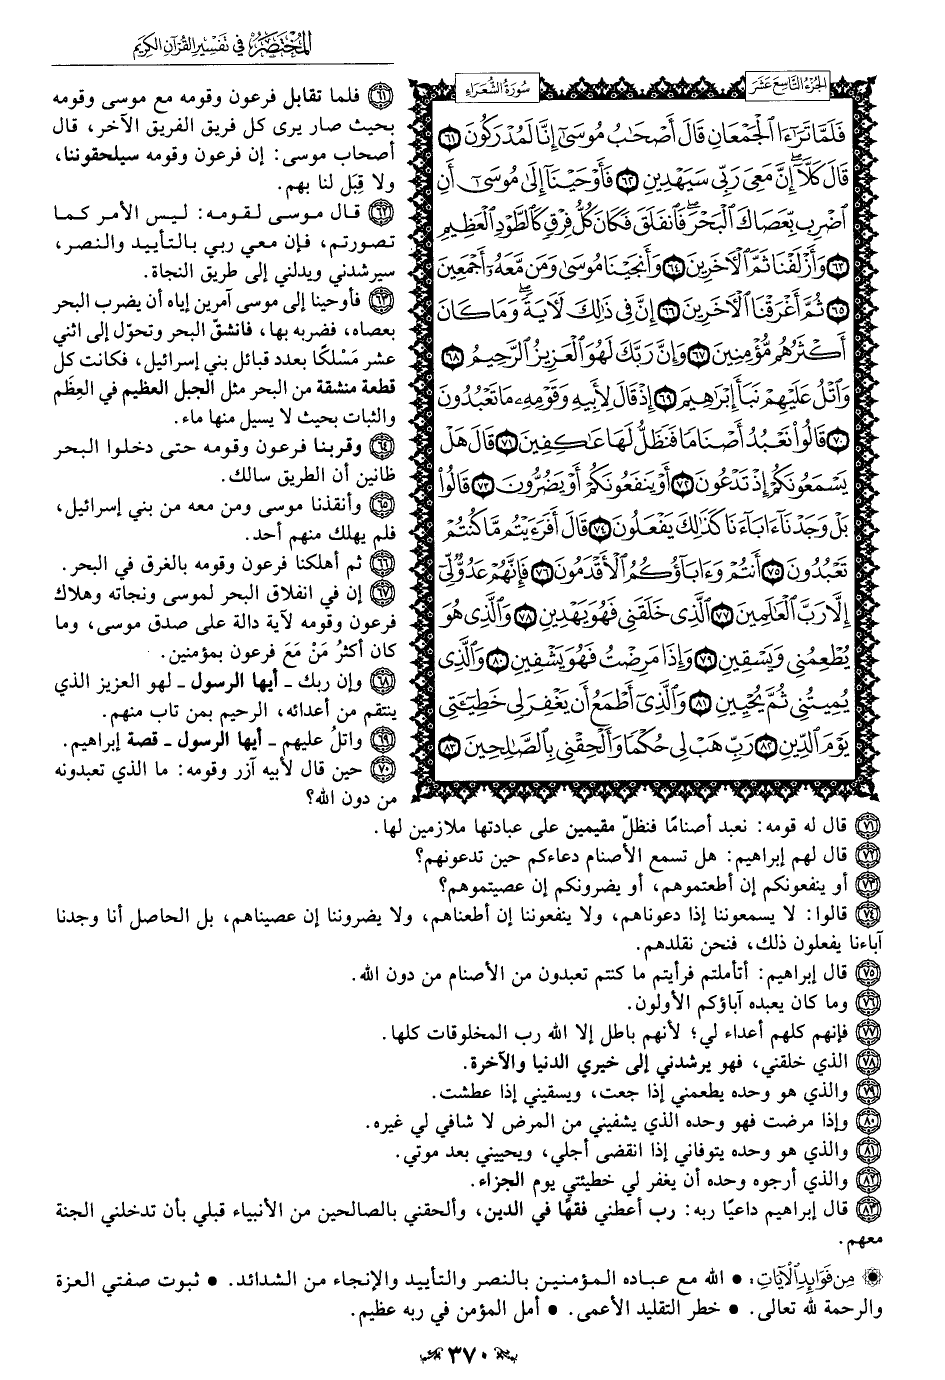 المختصر في تفسير القرآن الكريم
الجزء التاسع عشر
سورة الشعراء
فَلَمَّا تَرَٰٓءَا ٱلۡجَمۡعَانِ قَالَ أَصۡحَٰبُ مُوسَىٰٓ إِنَّا لَمُدۡرَكُونَ ٦١
قَالَ كَلَّآۖ إِنَّ مَعِيَ رَبِّي سَيَهۡدِينِ ٦٢ فَأَوۡحَيۡنَآ إِلَىٰ مُوسَىٰٓ أَنِ
ٱضۡرِب بِّعَصَاكَ ٱلۡبَحۡرَۖ فَٱنفَلَقَ فَكَانَ كُلُّ فِرۡقٖ كَٱلطَّوۡدِ ٱلۡعَظِيمِ
٦٣ وَأَزۡلَفۡنَا ثَمَّ ٱلۡأٓخَرِينَ ٦٤ وَأَنجَيۡنَا مُوسَىٰ وَمَن مَّعَهُۥٓ أَجۡمَعِينَ
٦٥ ثُمَّ أَغۡرَقۡنَا ٱلۡأٓخَرِينَ ٦٦ إِنَّ فِي ذَٰلِكَ لَأٓيَةٗۖ وَمَا كَانَ
أَكۡثَرُهُم مُّؤۡمِنِينَ ٦٧ وَإِنَّ رَبَّكَ لَهُوَ ٱلۡعَزِيزُ ٱلرَّحِيمُ ٦٨
وَٱتۡلُ عَلَيۡهِمۡ نَبَأَ إِبۡرَٰهِيمَ ٦٩ إِذۡ قَالَ لِأَبِيهِ وَقَوۡمِهِۦ مَا تَعۡبُدُونَ
٧٠ قَالُواْ نَعۡبُدُ أَصۡنَامٗا فَنَظَلُّ لَهَا عَٰكِفِينَ ٧١ قَالَ هَلۡ
يَسۡمَعُونَكُمۡ إِذۡ تَدۡعُونَ ٧٢ أَوۡ يَنفَعُونَكُمۡ أَوۡ يَضُرُّونَ ٧٣ قَالُواْ
بَلۡ وَجَدۡنَآ ءَابَآءَنَا كَذَٰلِكَ يَفۡعَلُونَ ٧٤ قَالَ أَفَرَءَيۡتُم مَّا كُنتُمۡ
تَعۡبُدُونَ ٧٥ أَنتُمۡ وَءَابَآؤُكُمُ ٱلۡأَقۡدَمُونَ ٧٦ فَإِنَّهُمۡ عَدُوّٞ لِّيٓ
إِلَّا رَبَّ ٱلۡعَٰلَمِينَ ٧٧ ٱلَّذِي خَلَقَنِي فَهُوَ يَهۡدِينِ ٧٨ وَٱلَّذِي هُوَ
يُطۡعِمُنِي وَيَسۡقِينِ ٧٩ وَإِذَا مَرِضۡتُ فَهُوَ يَشۡفِينِ ٨٠ وَٱلَّذِي
يُمِيتُنِي ثُمَّ يُحۡيِينِ ٨١ وَٱلَّذِيٓ أَطۡمَعُ أَن يَغۡفِرَ لِي خَطِيٓـَٔتِي
يَوۡمَ ٱلدِّينِ ٨٢ رَبِّ هَبۡ لِي حُكۡمٗا وَأَلۡحِقۡنِي بِٱلصَّٰلِحِينَ ٨٣
٦١ فلما تقابل فرعون وقومه مع موسى وقومه
بحيث صار يرى كل فريق الفريق الآخر، قال
أصحاب موسى: إن فرعون وقومه سيلحقوننا،
ولا قِبَل لنا بهم.
٦٢ قال موسى لقومه: ليس الأمر كما
تصورتم، فإن معي ربي بالتأييد والنصر،
سيرشدني ويدلني إلى طريق النجاة.
٦٣ فأوحينا إلى موسى آمرين إياه أن يضرب البحر
بعصاه، فضربه بها، فانشقّ البحر وتحوّل إلى اثني
عشر مَسْلكًا بعدد قبائل بني إسرائيل، فكانت كل
قطعة منشقة من البحر مثل الجبل العظيم في العِظَم
والثبات بحيث لا يسيل منها ماء.
٦٤ وقربنا فرعون وقومه حتى دخلوا البحر
ظانين أن الطريق سالك.
٦٥ وأنقذنا موسى ومن معه من بني إسرائيل،
فلم يهلك منهم أحد.
٦٦ ثم أهلكنا فرعون وقومه بالغرق في البحر.
٦٧ إن في انفلاق البحر لموسى ونجاته وهلاك
فرعون وقومه لآية دالة على صدق موسى، وما
كان أكثرُ مَنْ مَعَ فرعون بمؤمنين.
٦٨ وإن ربك ـ أيها الرسول ـ لهو العزيز الذي
ينتقم من أعدائه، الرحيم بمن تاب منهم.
٦٩ واتلُ عليهم ـ أيها الرسول ـ قصة إبراهيم.
٧٠ حين قال لأبيه آزر وقومه: ما الذي تعبدونه
من دون الله؟
٧١ قال له قومه: نعبد أصنامًا فنظلّ مقيمين على عبادتها ملازمين لها.
٧٢ قال لهم إبراهيم: هل تسمع الأصنام دعاءكم حين تدعونهم؟
٧٣ أو ينفعونكم إن أطعتموهم، أو يضرونكم إن عصيتموهم؟
٧٤ قالوا: لا يسمعوننا إذا دعوناهم، ولا ينفعوننا إن أطعناهم، ولا يضروننا إن عصيناهم، بل الحاصل أنا وجدنا
آباءنا يفعلون ذلك، فنحن نقلدهم.
٧٥ قال إبراهيم: أتأملتم فرأيتم ما كنتم تعبدون من الأصنام من دون الله.
٧٦ وما كان يعبده آباؤكم الأولون.
٧٧ فإنهم كلهم أعداء لي؛ لأنهم باطل إلا الله رب المخلوقات كلها.
٧٨ الذي خلقني، فهو يرشدني إلى خيري الدنيا والآخرة.
٧٩ والذي هو وحده يطعمني إذا جعت، ويسقيني إذا عطشت.
٨٠ وإذا مرضت فهو وحده الذي يشفيني من المرض لا شافي لي غيره.
٨١ والذي هو وحده يتوفاني إذا انقضى أجلي، ويحييني بعد موتي.
٨٢ والذي أرجوه وحده أن يغفر لي خطيئتي يوم الجزاء.
٨٣ قال إبراهيم داعيًا ربه: رب أعطني فقهًا في الدين، وألحقني بالصالحين من الأنبياء قبلي بأن تدخلني الجنة
معهم.
من فوائد الآيات: • الله مع عباده المؤمنين بالنصر والتأييد والإنجاء من الشدائد. • ثبوت صفتي العزة
والرحمة لله تعالى. • خطر التقليد الأعمى. • أمل المؤمن في ربه عظيم.
٣٧٠